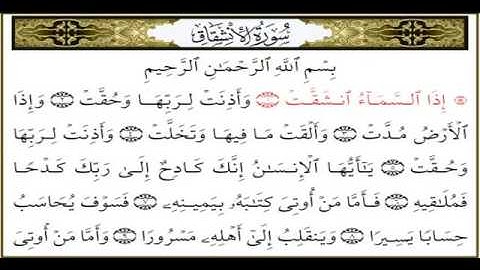 سُورَةُ الِانْشِقَاقِ
بِسْمِ ٱللَّهِ ٱلرَّحْمَٰنِ ٱلرَّحِيمِ
إِذَا ٱلسَّمَآءُ ٱنشَقَّتْ ۝١ وَأَذِنَتْ لِرَبِّهَا وَحُقَّتْ ۝٢ وَإِذَا
ٱلْأَرْضُ مُدَّتْ ۝٣ وَأَلْقَتْ مَا فِيهَا وَتَخَلَّتْ ۝٤ وَأَذِنَتْ لِرَبِّهَا
وَحُقَّتْ ۝٥ يَٰٓأَيُّهَا ٱلْإِنسَٰنُ إِنَّكَ كَادِحٌ إِلَىٰ رَبِّكَ كَدْحًا
فَمُلَٰقِيهِ ۝٦ فَأَمَّا مَنْ أُوتِىَ كِتَٰبَهُۥ بِيَمِينِهِۦ ۝٧ فَسَوْفَ يُحَاسَبُ
حِسَابًا يَسِيرًا ۝٨ وَيَنقَلِبُ إِلَىٰٓ أَهْلِهِۦ مَسْرُورًا ۝٩ وَأَمَّا مَنْ أُوتِىَ